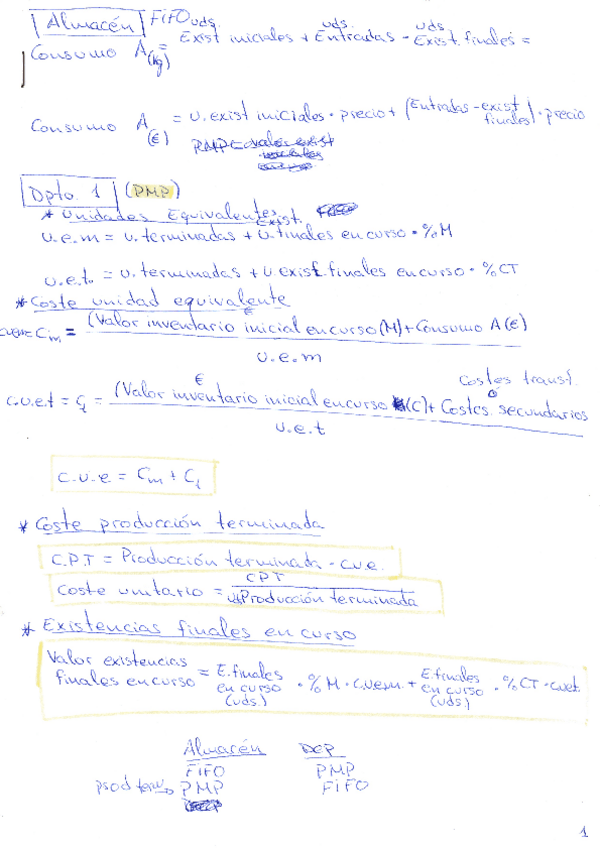 Almacén FIFO
Consumo A (kg) = uds. Exist iniciales + uds. Entradas - uds Exist. finales =
Consumo A (€) = U. exist iniciales · precio + (Entradas - exist finales) · precio
Dpto. 1 (PMP)
* Unidades Equivalentes
u.e.m = u. terminadas + U. exist. finales en curso · % M
u.e.t. = u. terminadas + u exist. finales en curso · % CT
* Coste unidad equivalente
Cm = (Valor inventario inicial en curso (M) + Consumo A (€)
u.e.m
c.u.e.t = Ct = (Valor € inventario inicial en curso (C) + Costes secundarios o Costes transf.
u.e.t
c.u.e = Cm + Ct
* Coste producción terminada
C.P.T = Producción terminada · c.u.e.
Coste unitario = CPT
Producción terminada
* Existencias finales en curso
Valor existencias finales en curso = E. finales en curso (uds.) · % M · c.u.e.m. + E. finales en curso (uds) · % CT · c.u.e.t.
Almacén DEP
FIFO PMP
prod term → PMP FIFO
1